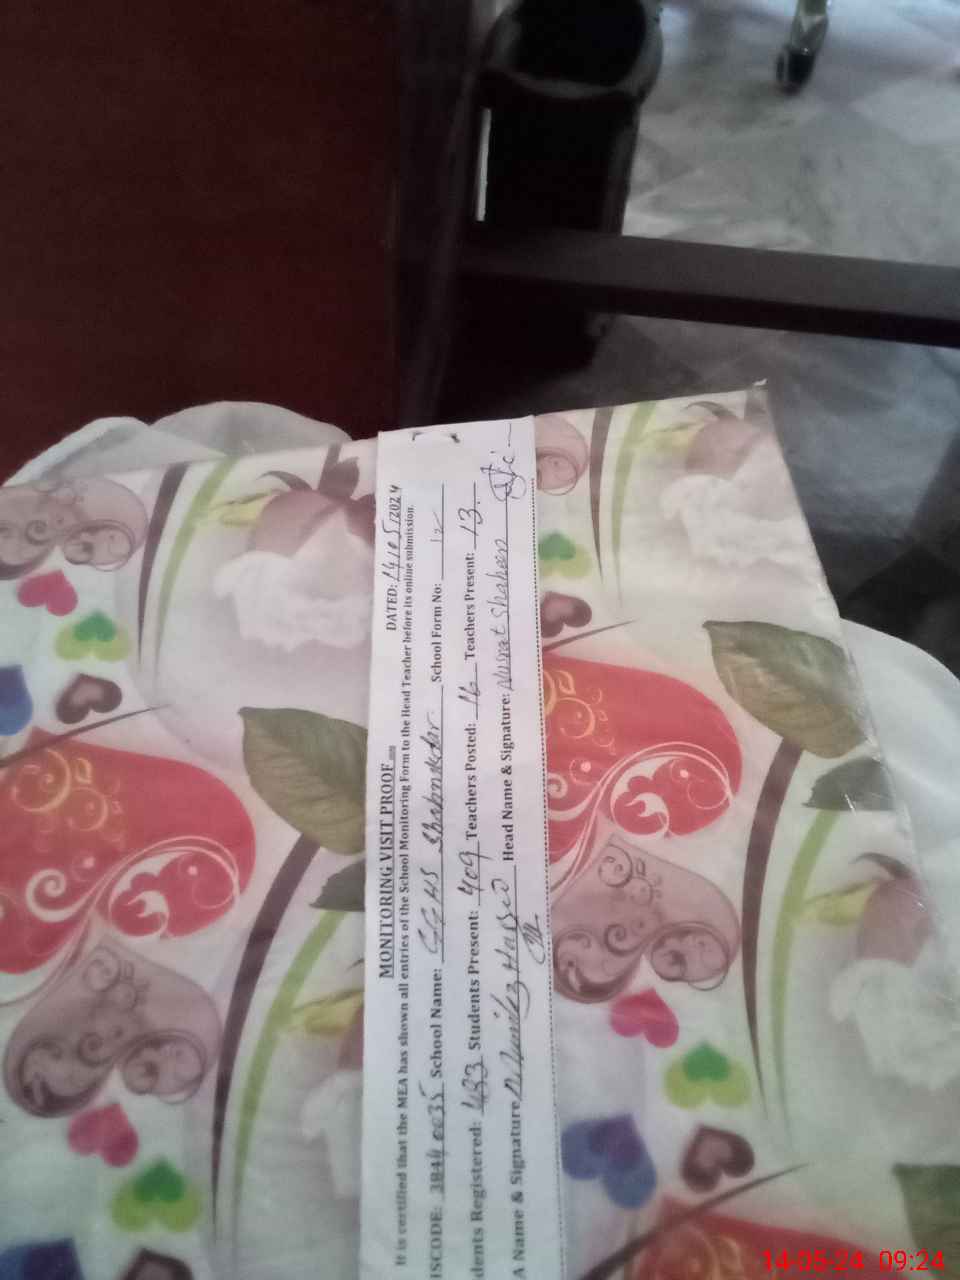 MONITORING VISIT PROOF DATED: 14/05/2024
It is certified that the MEA has shown all entries of the School Monitoring Form to the Head Teacher before its online submission.
ISCODE: 38440035 School Name: GGHS School Form No: 12
dents Registered: 433 Students Present: 409 Teachers Posted: 16 Teachers Present: 13
A Name & Signature Head Name & Signature: Nusrat Shaheen
14-05-24 09:24